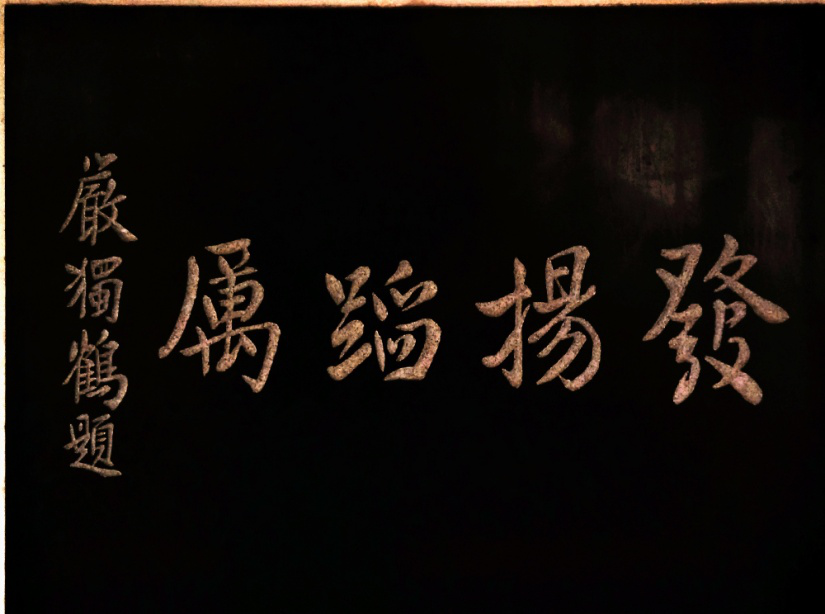 發揚蹈厲
嚴獨鶴題